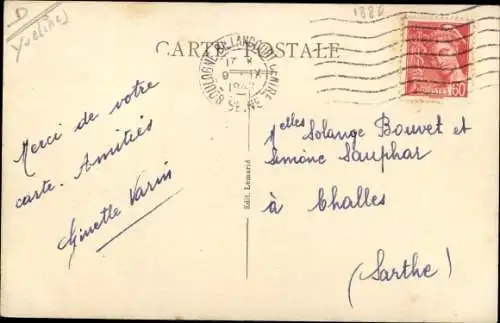 D
Yveline)
1886
CARTE POSTALE
BOULOGNE-BILLANCOURT CENTRE
17 H
9 - IX
SEINE
POSTES 60
Merci de votre
carte. Amitiés
Ginette Varin
Edit. Lemarié
Melles Solange Bouvet et
Simone Sauphar
à Challes
(Sarthe)